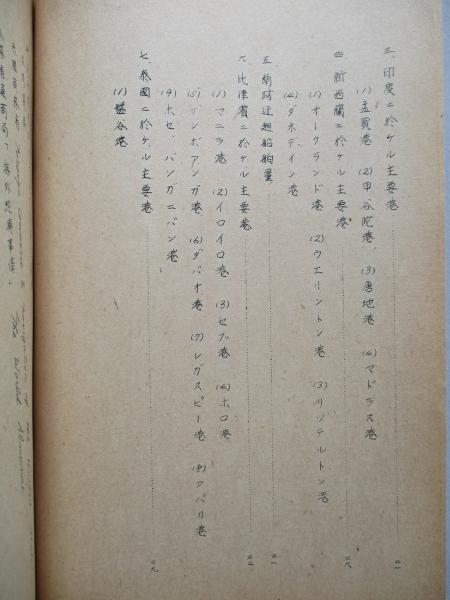 三、印度ニ於ケル主要港……二一
(1)孟買港 (2)甲谷陀港 (3)唐地港 (4)マドラス港
四、新西蘭ニ於ケル主要港……二六
(1)オークランド港 (2)ウエリントン港 (3)リツテルトン港
(4)ダネデイン港
五、南阿迂廻船舶量……三一
六、比律賓ニ於ケル主要港……三二
(1)マニラ港 (2)イロイロ港 (3)セブ港 (4)ホロ港
(5)ザンボアンガ港 (6)ダバオ港 (7)レガスピー港 (8)アパリ港
(9)ホセ、パンガニバン港
七、泰國ニ於ケル主要港……三九
(1)盤谷港